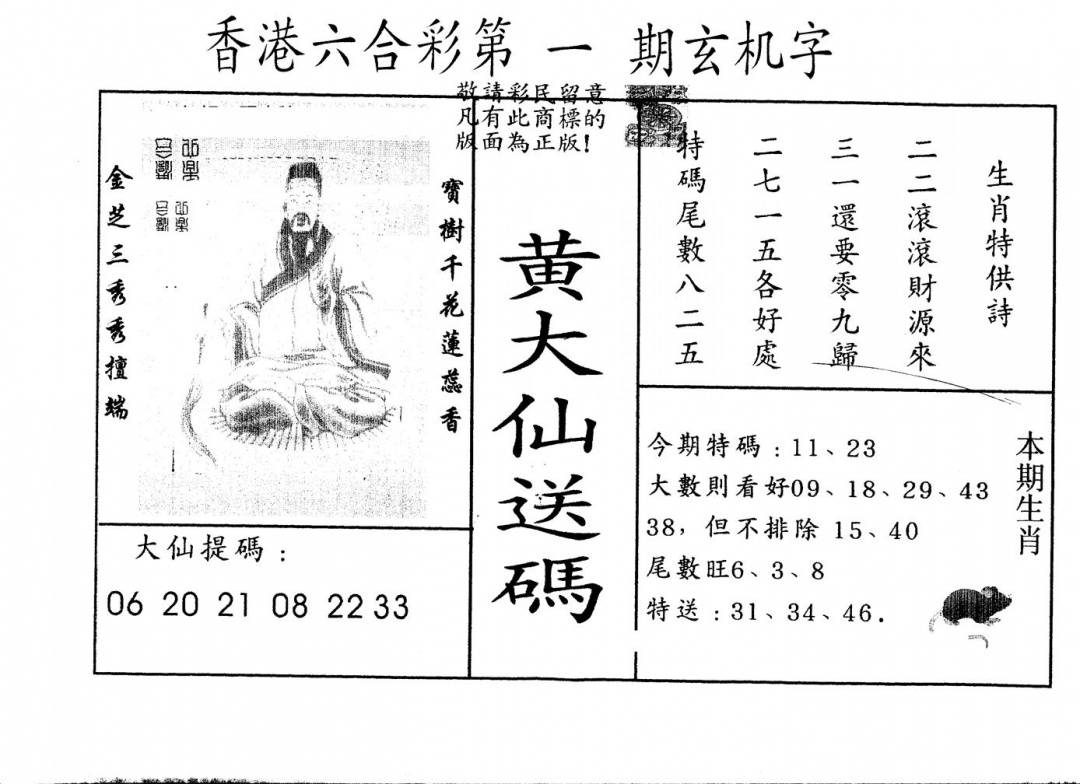 香港六合彩第 一 期玄机字
敬請彩民留意
凡有此商標的
版面為正版!
金芝三秀秀擅端
寶樹千花蓮蕊香
黄大仙送碼
生肖特供詩
二二滾滾財源來
三一還要零九歸
二七一五各好處
特碼尾數八二五
大仙提碼：
06 20 21 08 22 33
今期特碼：11、23
大數則看好09、18、29、43
38，但不排除 15、40
尾數旺6、3、8
特送：31、34、46.
本期生肖